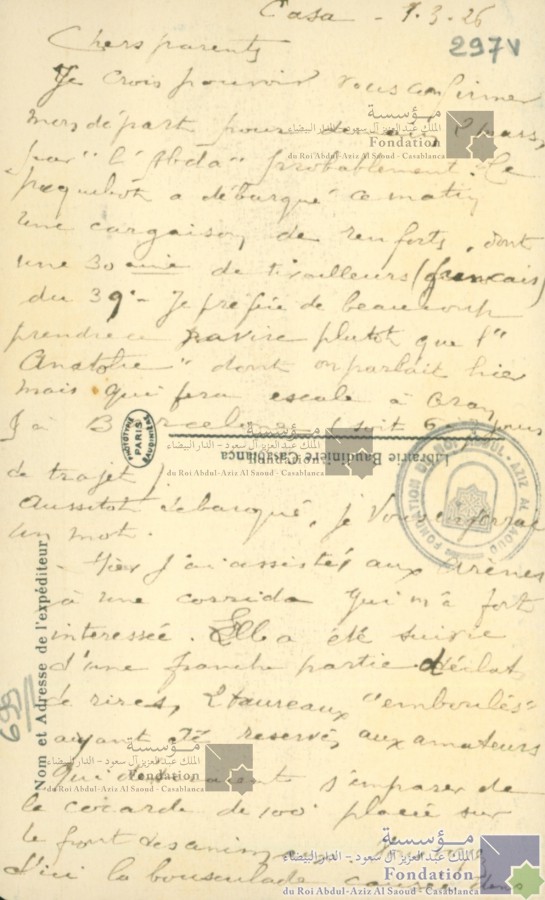 Casa - 1.3.26
297V
Chers parents
Je crois pouvoir vous confirmer
mon départ pour
par "l'Abda" probablement. Le
paquebot a débarqué ce matin
une cargaison de renforts, dont
une 30aine de tirailleurs (français)
du 39e - Je préfère de beaucoup
prendre ce navire plutôt que l'"
Anatolie" dont on parlait hier
mais qui fera escale à Oran
jours
de trajet).
Aussitôt débarqué, je vous enverrai
un mot.
- Hier j'ai assisté aux arènes
à une corrida qui m'a fort
interessée. Elle a été suivie
d'une franche partie d'éclat
de rires, 2 taureaux "emboulés"
ayant été reservés aux amateurs
qui s'emparer de
la cocarde de 100f placée sur
le front des animaux
d'ici la bousculade dans
PHOTOTYPIE BAUDINIÈRE
PARIS
Librairie Baudinière Casablanca
Nom et Adresse de l'expéditeur
699
FONDATION DU ROI ABDUL-AZIZ AL SAOUD
مؤسسة
الملك عبد العزيز آل سعود - الدار البيضاء
Fondation
du Roi Abdul-Aziz Al Saoud - Casablanca
مؤسسة
الملك عبد العزيز آل سعود - الدار البيضاء
Fondation
du Roi Abdul-Aziz Al Saoud - Casablanca
مؤسسة
الملك عبد العزيز آل سعود - الدار البيضاء
Fondation
du Roi Abdul-Aziz Al Saoud - Casablanca
مؤسسة
الملك عبد العزيز آل سعود - الدار البيضاء
Fondation
du Roi Abdul-Aziz Al Saoud - Casablanca